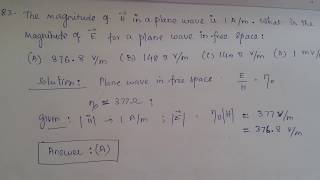 83. The magnitude of H⃗ in a plane wave is 1 A/m. What is the
magnitude of E⃗ for a plane wave in free space:
(A) 376.8 V/m (B) 148 V/m (C) 14 V/m (D) 1 mV/m
Solution: Plane wave in free space : E/H = η₀
η₀ ≅ 377Ω :
given: |H⃗| → 1 A/m ; |E⃗| = η₀|H⃗| ≅ 377 V/m
≅ 376.8 V/m
Answer : (A)